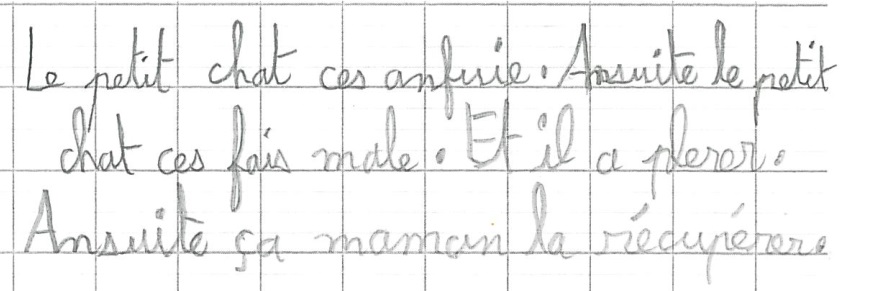 Le petit chat ces anfuie. Ansuite le petit
chat ces fais male. Et il a plerer.
Ansuite ça maman la récupérer.